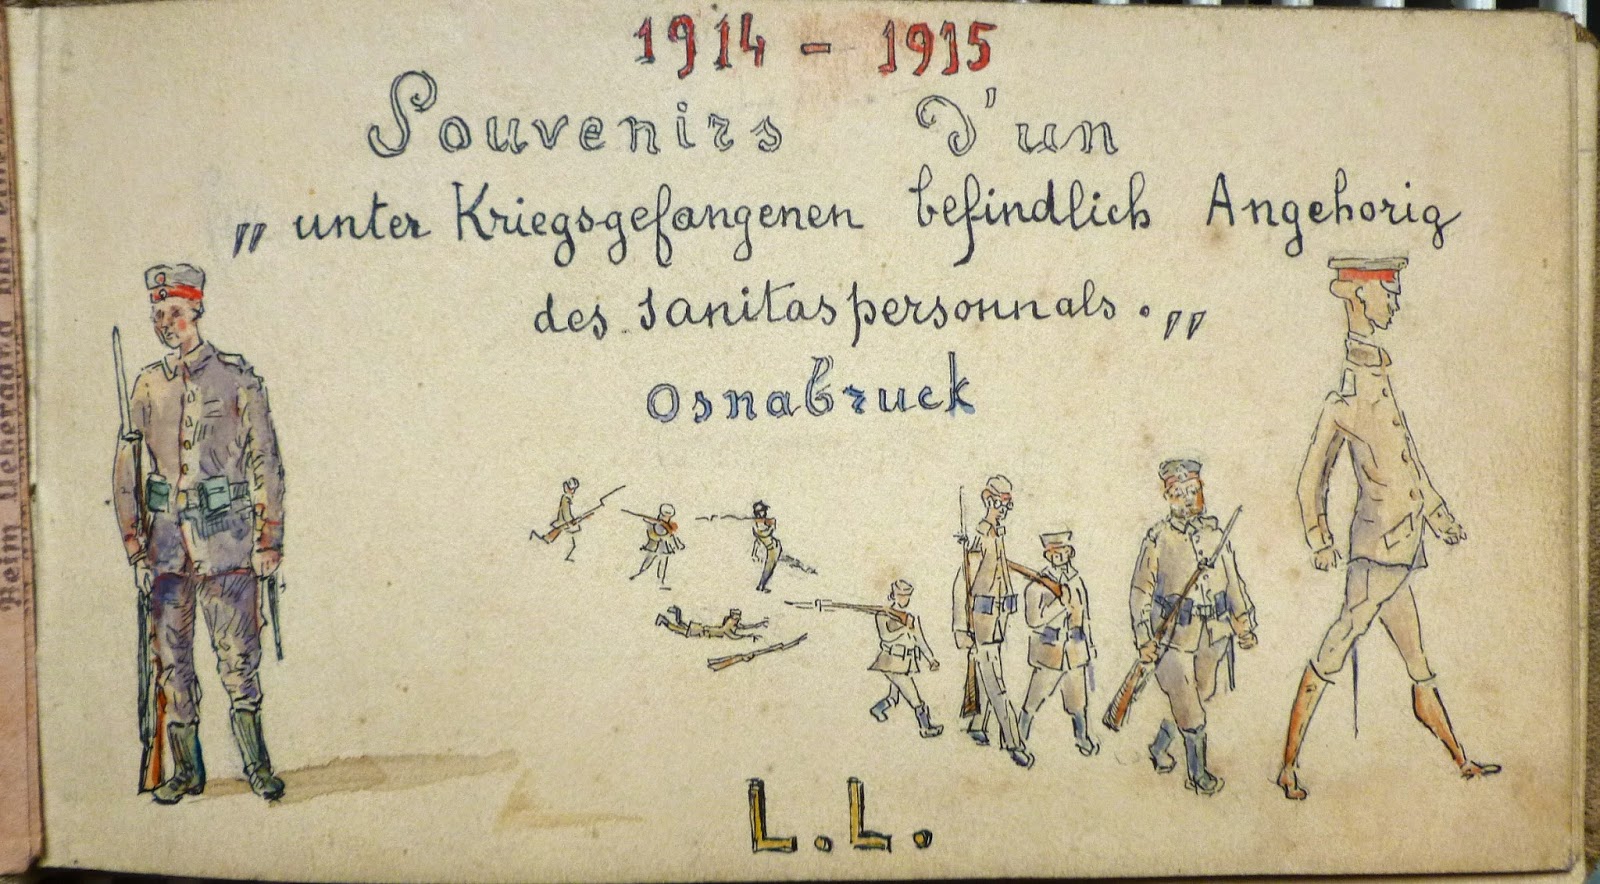 1914 - 1915
Souvenirs D'un
„ unter Kriegsgefangenen befindlich Angehorig
des sanitaspersonnals. „
Osnabruck
L.L.
Beim